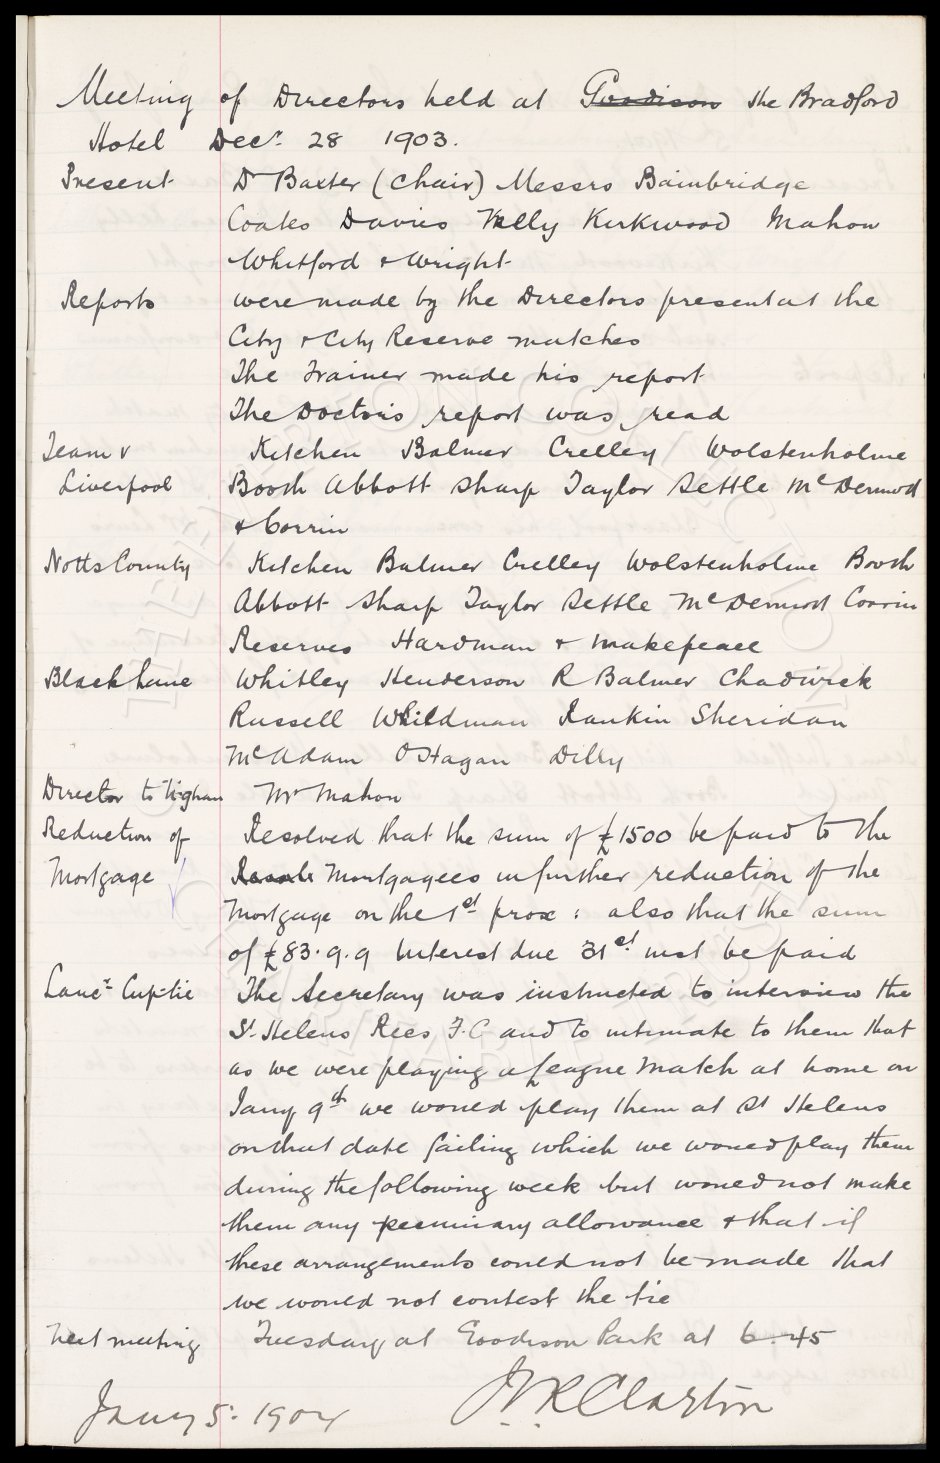 Meeting of Directors held at Goodison the Bradford
Hotel Decr. 28 1903.
Present Dr Baxter (Chair) Messrs Bainbridge
Coates Davies Kelly Kirkwood Mahon
Whitford & Wright
Reports were made by the Directors present at the
City & City Reserve matches
The Trainer made his report
The Doctor's report was read
Team v Kitchen Balmer Crelley Wolstenholme
Liverpool Booth Abbott Sharp Taylor Settle McDermott
& Corrin
Notts County Kitchen Balmer Crelley Wolstenholme Booth
Abbott Sharp Taylor Settle McDermott Corrin
Reserves Hardman & Makepeace
Black Lane Whitley Henderson R Balmer Chadwick
Russell Wildman Rankin Sheridan
McAdam O'Hagan Dilly
Director to Mr Mahon
Reduction of Resolved that the sum of £1500 be paid to the
Mortgage Mortgagees in further reduction of the
Mortgage on the 1st prox: also that the sum
of £83.9.9 Interest due 31st inst be paid
Lancr. Cup-tie The Secretary was instructed to interview the
St. Helens Recs F.C and to intimate to them that
as we were playing a League Match at home on
Jany 9th we would play them at St Helens
on that date failing which we would play them
during the following week but would not make
them any pecuniary allowance & that if
these arrangements could not be made that
we would not contest the tie
Next meeting Tuesday at Goodison Park at 6.45
Jany 5. 1904 J.R Clayton